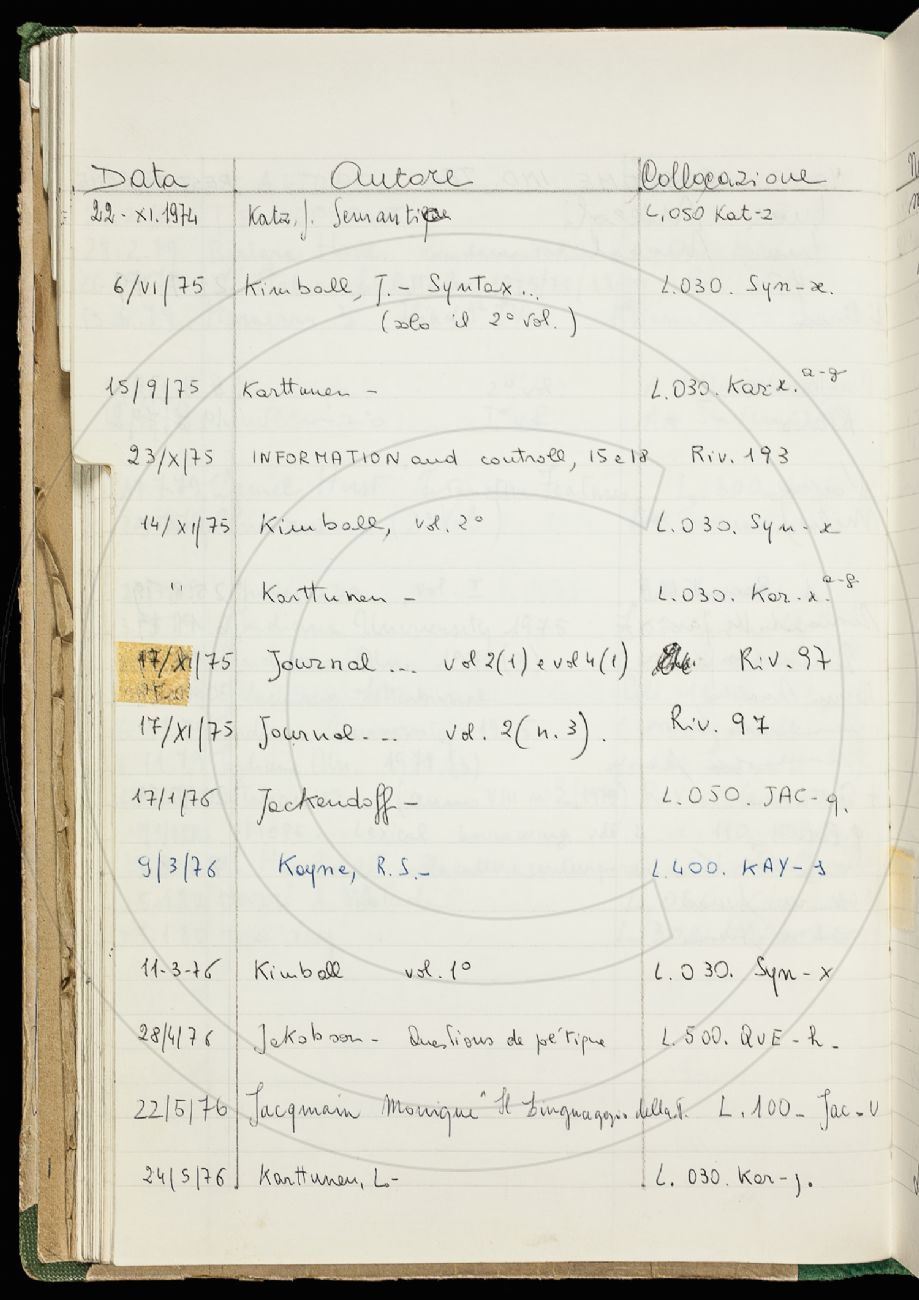 Data Autore Collocazione
22-XI.1974 Katz, J. Semantique L.050 Kat-z
6/VI/75 Kimball, J. - Syntax... L.030. Syn-x.
(solo il 2° vol.)
15/9/75 Karttunen - L.030. Kar-x. a-g
23/X/75 INFORMATION and controll, 15 e 18 Riv. 193
14/XI/75 Kimball, vol. 2° L.030. Syn-x
" Karttunen - L.030. Kar-x. a-g.
17/XI/75 Journal ... vol 2(1) e vol 4(1) Riv. 97
17/XI/75 Journal .... vol. 2(n.3). Riv. 97
17/1/76 Jackendoff - L.050. JAC-q.
9/3/76 Kayne, R.S.- L.400. KAY-s
11-3-76 Kimball vol. 1° L.030. Syn-x
28/4/76 Jakobson - Questions de pétique L.500. QUE-h.
22/5/76 Jacqmain Monique "Il linguaggio della L.100- Jac-U
24/5/76 Karttunen, L.- L. 030. Kar-j.